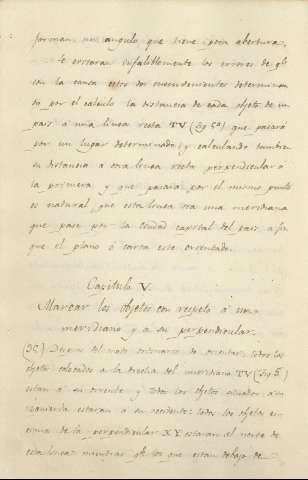 forman un angulo que tiene poca abertura.
Se evitaran infaliblemente los errores de q.e
son la causa estos dos inconvenientes determinan
do por el calculo la distancia de cada objeto de un
pais á una linea recta TV (fig 5ª) que pasará
por un lugar determinado; y calculando tambien
su distancia á otra linea recta perpendicular á
la primera y que pasará por el mismo punto
es natural, que esta linea sea una meridiana
que pase por la ciudad capital del pais a fin
que el plano ó carta este orientado.
Capitulo V.
Marcar los objetos con respeto á una
meridiana y a su perpendicular.
del modo ordinario de orientar, todos los
objetos colocados a la derecha del meridiano TV (fig 5)
estan á su oriente y todos los objetos situados á su
izquierda estaran á su occidente: todos los objetos en
cima de la perpendicular XY estaran al norte de
esta linea; mientras q.e los que estan debajo de